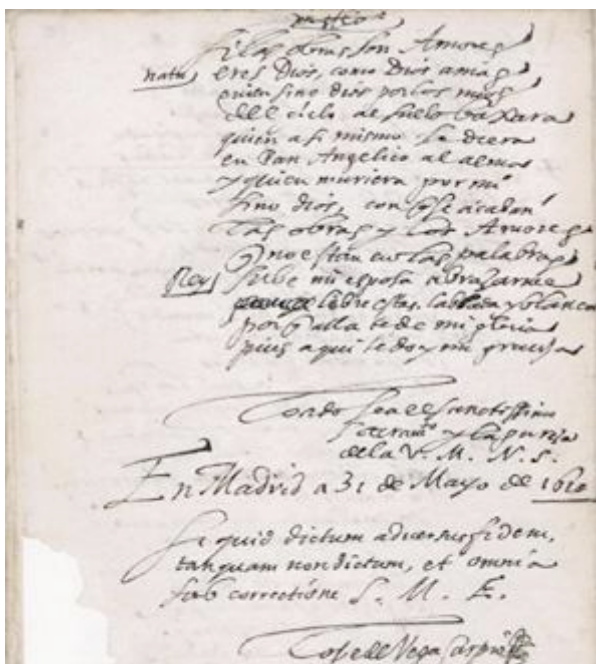 si las obras son Amores
natu eres Dios, como Dios amas
quien sino dios por los
del cielo al suelo baxara
quien a si mismo se diera
en Pan Angelico al alma
y quien muriera por mi
sino dios, con q̃ se acaban
las obras y los Amores
q̃ no estan en las palabras
Rey sube mi esposa abrazarme
y blanca
por q̃ alla te de mi gloria
pues aqui te doy mi gracia
Loado sea el sanctissimo
sacram^to y la pureza
de la V. M. N. S.
En Madrid a 31 de Mayo de 1610
Si quid dictum adversus fidem,
tanquam non dictum, et omnia
sub correctione S. M. E.
Lope de Vega Carpio